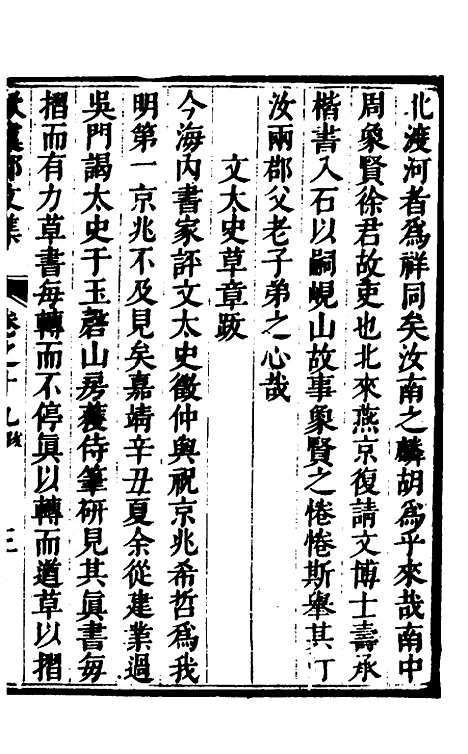 北渡河者為祥同矣汝南之麟胡為乎來哉南中
周象賢徐君故吏也北來燕京復請文博士壽承
楷書入石以嗣峴山故事象賢之惓惓斯舉其丁
汝兩郡父老子弟之心哉
文太史草章跋
今海內書家評文太史徵仲與祝京兆希哲為我
明第一京兆不及見矣嘉靖辛丑夏余從建業過
吳門謁太史于玉磬山房獲侍筆研見其眞書每
摺而有力草書每轉而不停眞以轉而遒草以摺
文集
卷之十九跋
三